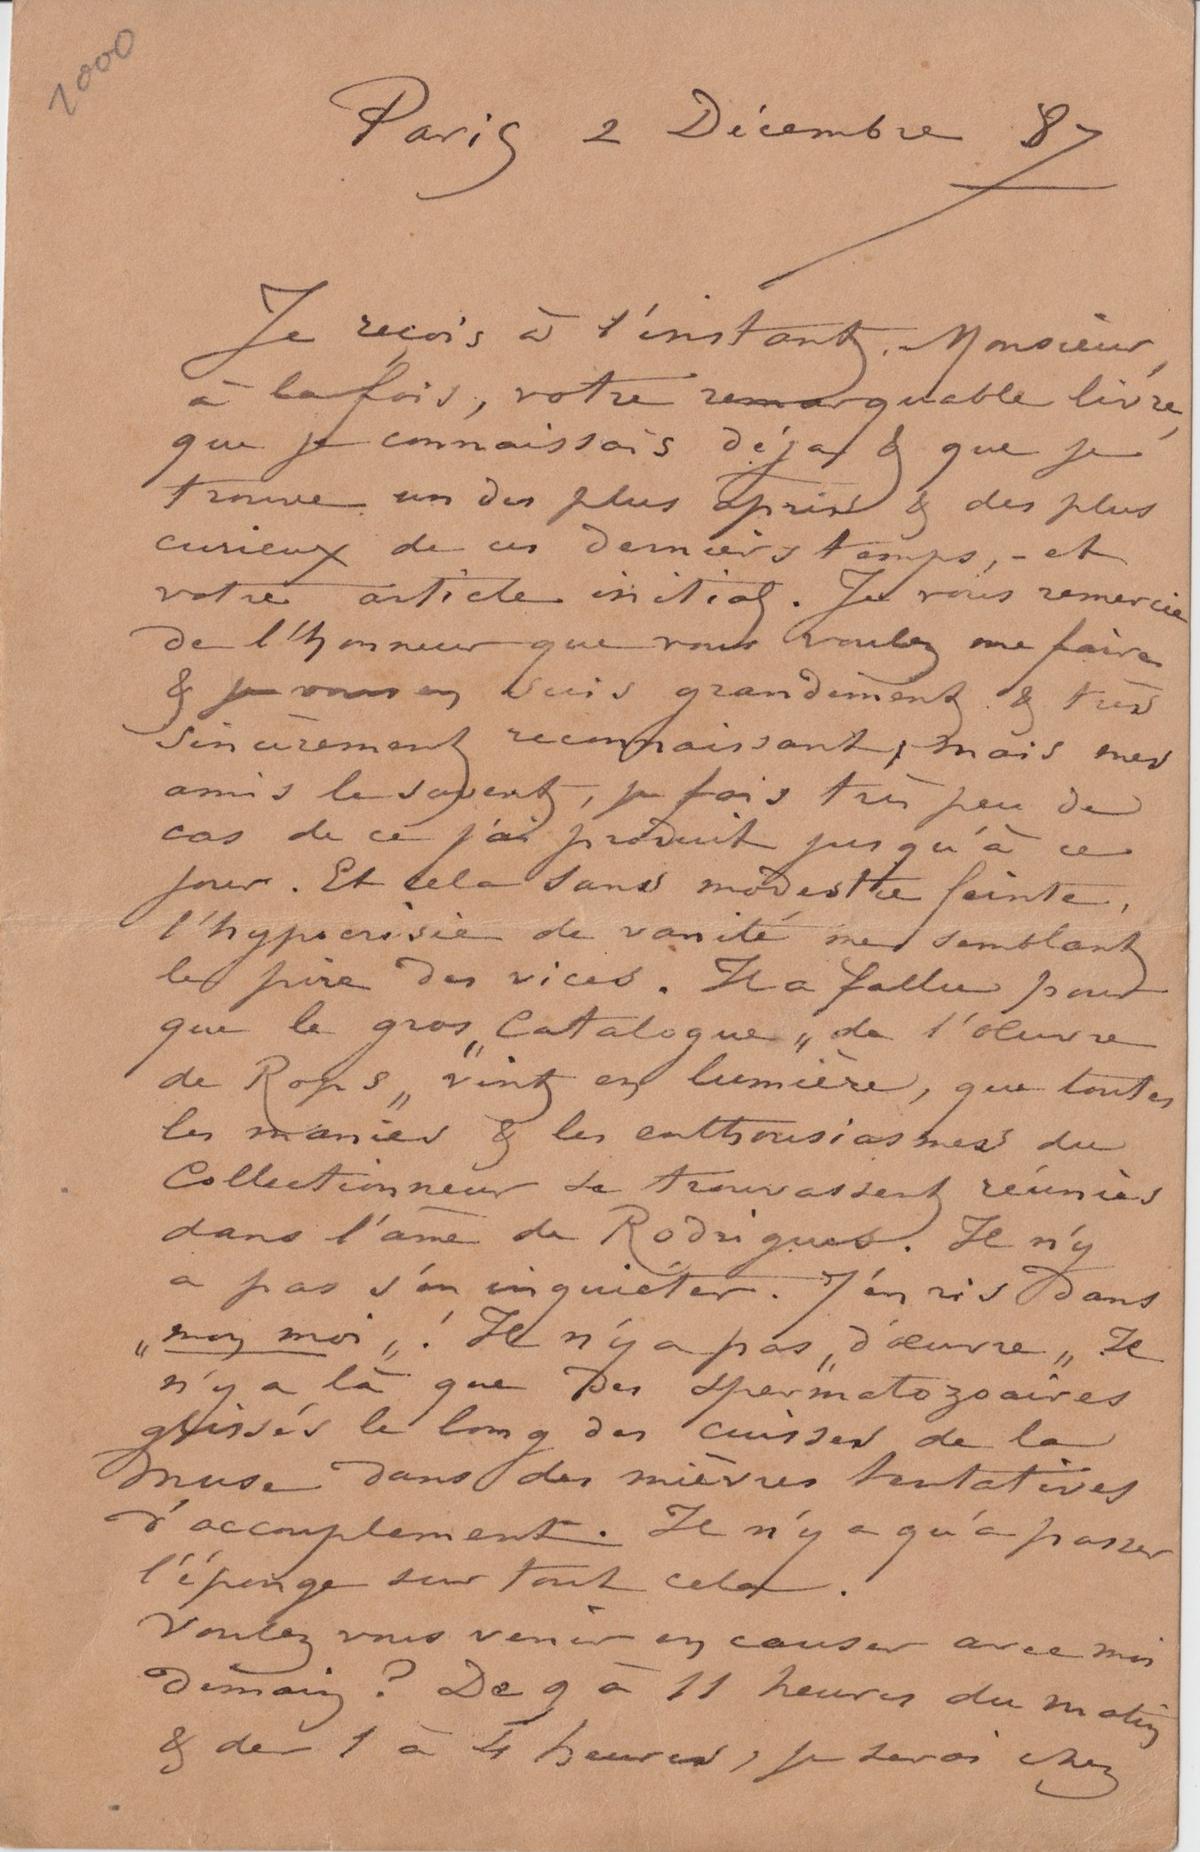 2000
Paris 2 Décembre 87
Je reçois à l'instant, Monsieur,
à la fois, votre remarquable livre,
que je connaissais déjà & que je
trouve un des plus âpres & des plus
curieux de ces derniers temps, - et
votre article initial. Je vous remercie
de l'honneur que vous voulez me faire
& je vous en suis grandement & très
sincèrement reconnaissant, mais mes
amis le savent, je fais très peu de
cas de ce j'ai produit jusqu'à ce
jour. Et cela sans modestie feinte,
l'hypocrisie de vanité me semblant
le pire des vices. Il a fallu pour
que le gros „Catalogue„ de l'œuvre
de Rops„ vint en lumière, que toutes
les manies & les enthousiasmes du
Collectionneur se trouvassent réunies
dans l'âme de Rodrigues. Il n'y
a pas s'en inquiéter. J'en ris dans
„mon moi„! Il n'y a pas „d'œuvre„ Il
n'y a là que des spermatozoaires
glissés le long des cuisses de la
Muse dans des mièvres tentatives
d'accouplement. Il n'y a qu'à passer
l'éponge sur tout cela.
Voulez vous venir en causer avec moi
demain? De 9 à 11 heures du matin
& de 1 à 4 heures, je serai chez